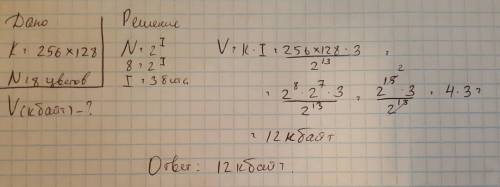 Дано
K = 256×128
N = 8 цветов
V(кбайт) - ?
Решение
N = 2^I
8 = 2^I
I = 3 бита
V = K · I = 256×128 · 3 / 2^13 =
= 2^8 · 2^7 · 3 / 2^13 = 2^15 · 3 / 2^13 = 4 · 3 =
2
= 12 кбайт
Ответ: 12 кбайт.